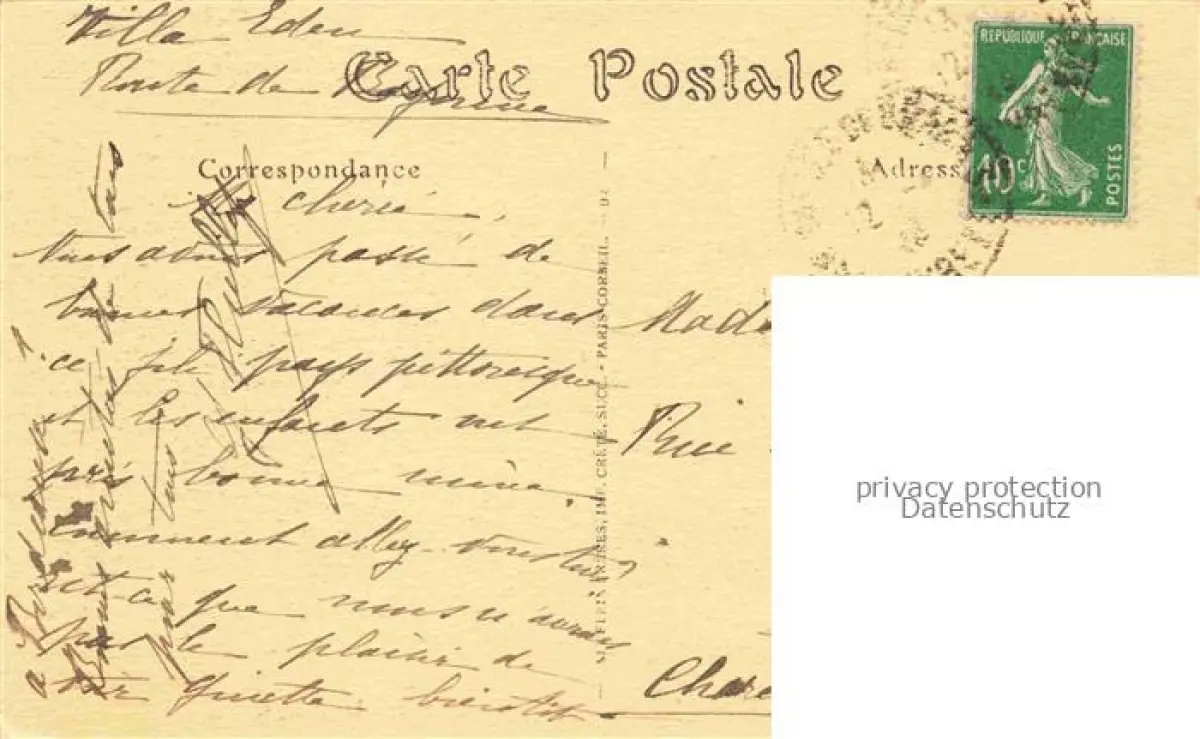 Villa Eden
Route de
Carte Postale
REPUBLIQUE FRANÇAISE
10c
POSTES
Correspondance
Adresse
chérie,
Nous avons passé de
bonnes vacances dans
ce joli pays pittoresque
et les enfants ont
pris bonne mine.
Comment allez-vous tous?
est-ce que nous n'aurons
pas le plaisir de
voir Ginette bientôt
à Bordeaux!
Bons baisers
pour tous
Mada
Rue
Chare
FRÈRES, IMP. CRÉTÉ, SUCC. - PARIS-CORBEIL.
privacy protection
Datenschutz